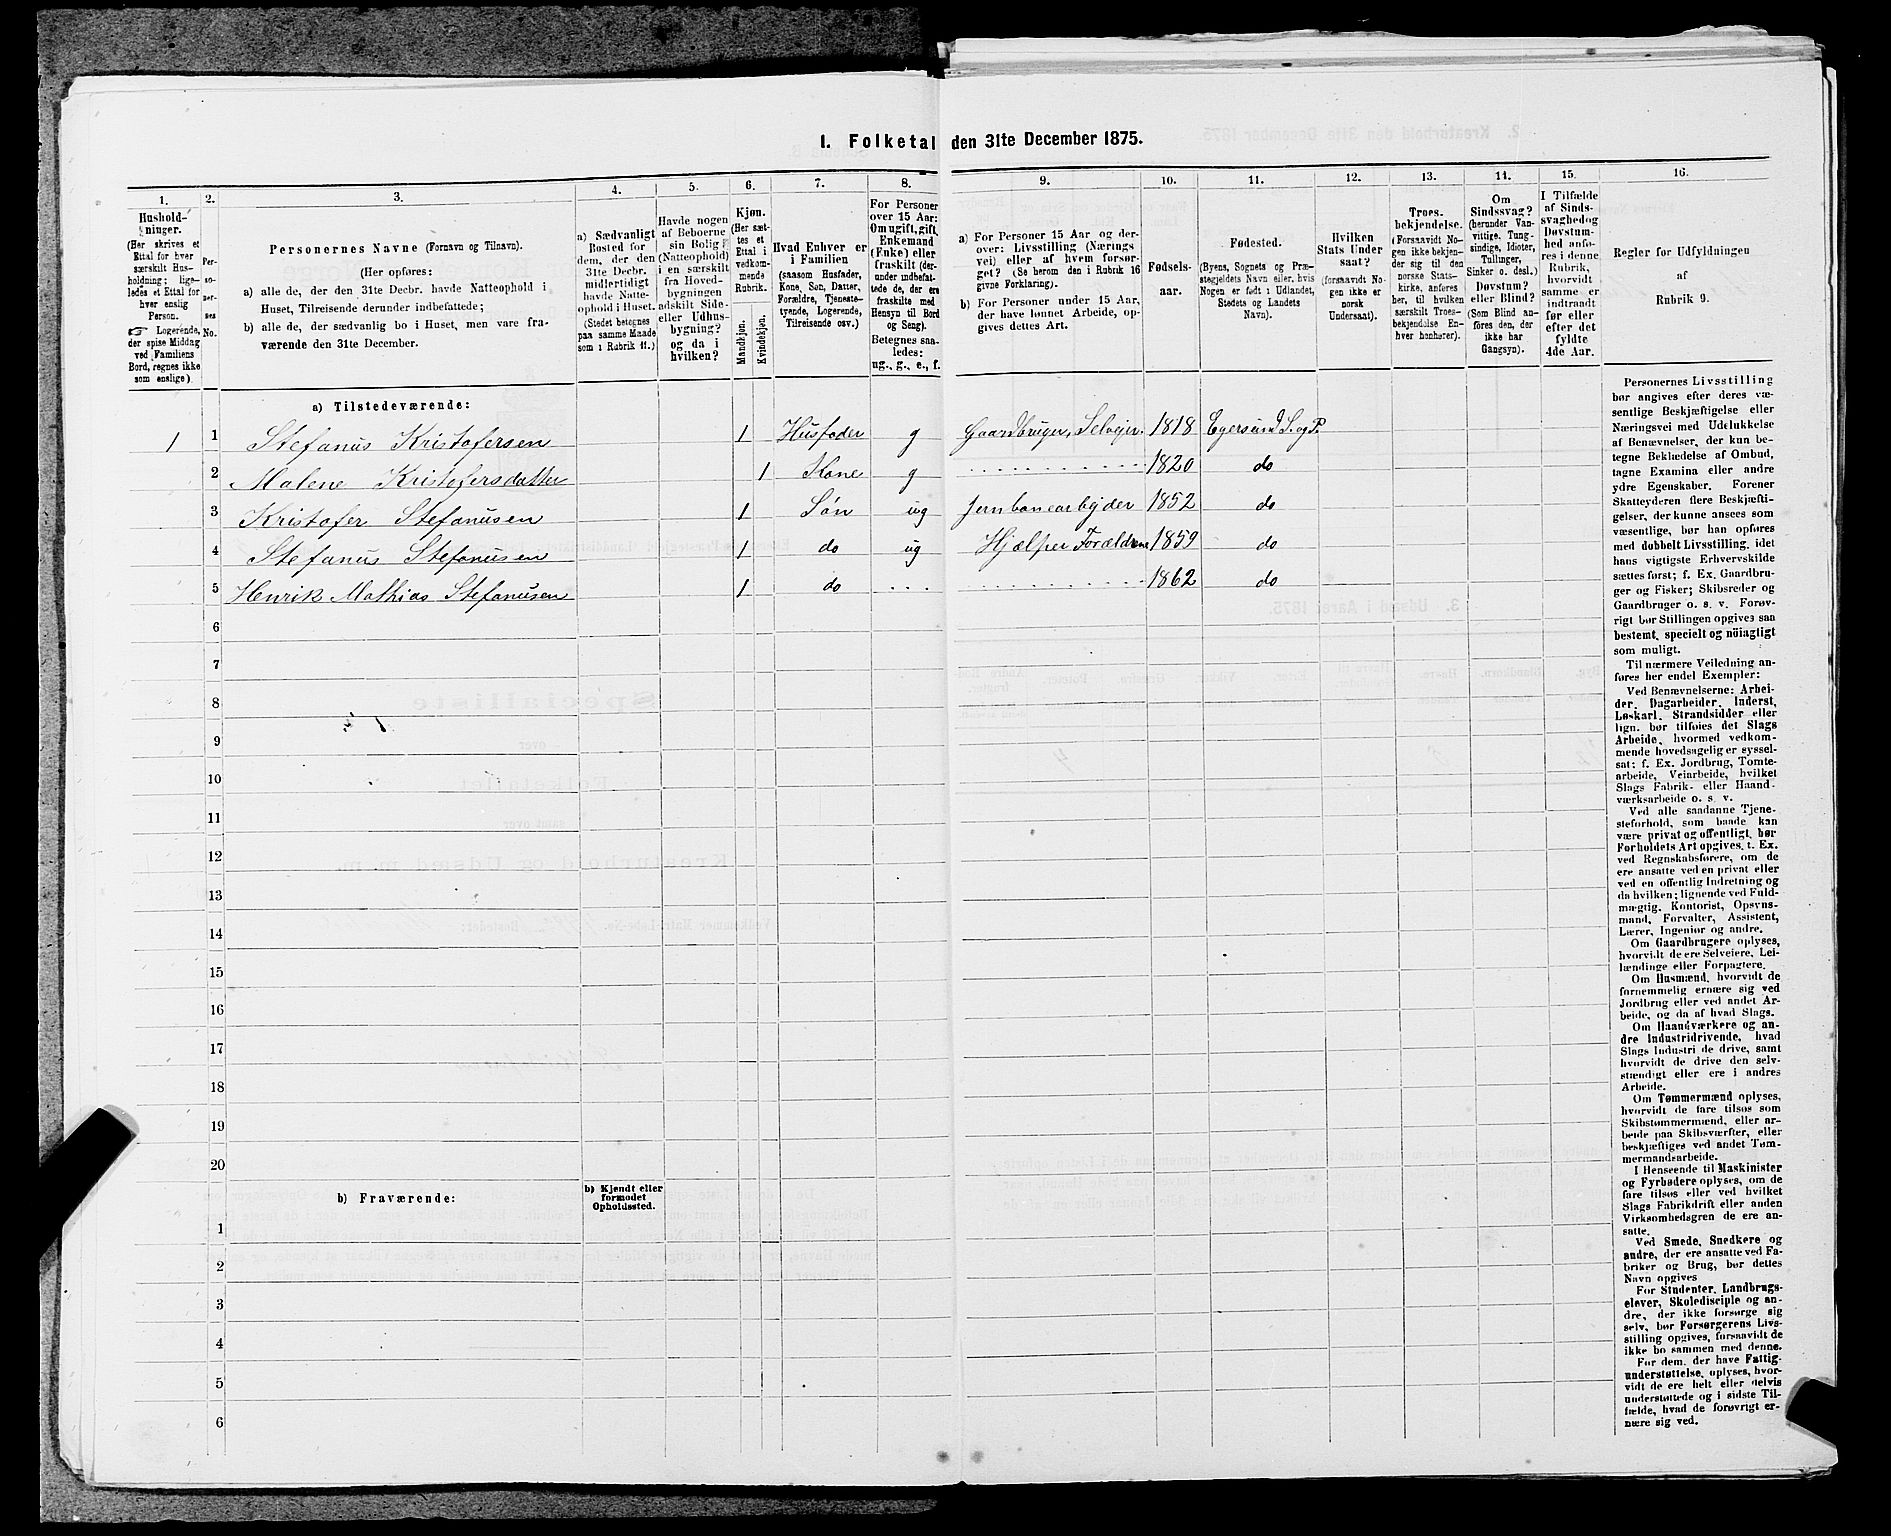 I. Folketal den 31te December 1875.
1.
Hushold-
ninger.
(Her skrives et
Ettal for hver
særskilt Hus-
holdning; lige-
ledes et Ettal for
hver enslig
Person.
☞ Logerende,
der spise Middag
ved Familiens
Bord, regnes ikke
som enslige).
2.
Per-
so-
ner-
nes
No.
3.
Personernes Navne (Fornavn og Tilnavn).
(Her opføres:
a) alle de, der den 31te Decbr. havde Natteophold i
Huset, Tilreisende derunder indbefattede;
b) alle de, der sædvanlig bo i Huset, men vare fra-
værende den 31te December.
4.
a) Sædvanligt
Bosted for
dem, der den
31te Decbr.
midlertidigt
havde Natte-
ophold i Huset.
(Stedet betegnes
paa samme Maade
som i Rubrik 11.)
5.
Havde nogen
af Beboerne
sin Bolig
(Natteophold)
i en særskilt
fra Hoved-
bygningen
adskilt Side-
eller Udhus-
bygning?
og da i
hvilken?
6.
Kjøn.
(Her sæt-
tes et
Ettal i
vedkom-
mende
Rubrik.
Mandkjøn.
Kvindekjøn.
7.
Hvad Enhver er
i Familien
(saasom Husfader,
Kone, Søn, Datter,
Forældre, Tjeneste-
tyende, Logerende,
Tilreisende osv.)
8.
For Personer
over 15 Aar:
Om ugift, gift,
Enkemand
(Enke) eller
fraskilt (der-
under indbefat-
tede de, der ere
fraskilte med
Hensyn til Bord
og Seng).
Betegnes saa-
ledes:
ug., g., e., f.
9.
a) For Personer 15 Aar og der-
over: Livsstilling (Nærings-
vei) eller af hvem forsør-
get? (Se herom den i Rubrik 16
givne Forklaring).
b) For Personer under 15 Aar,
der have lønnet Arbeide, op-
gives dettes Art.
10.
Fødsels-
aar.
11.
Fødested.
(Byens, Sognets og Præ-
stegjeldets Navn eller, hvis
Nogen er født i Udlandet,
Stedets og Landets
Navn).
12.
Hvilken
Stats Under
saat?
(forsaavidt No-
gen ikke er
norsk
Undersaat).
13.
Troes-
bekjendelse.
(Forsaavidt No-
gen ikke bekjen-
der sig til den
norske Stats-
kirke, anføres
her, til hvilken
særskilt Troes-
bekjendelse En-
hver henhører).
14.
Om
Sindssvag?
(herunder Van-
vittige, Tung-
sindige, Idioter,
Tullinger,
Sinker o. desl.)
Døvstum?
eller Blind?
(Som Blind an-
føres den, der
ikke har
Gangsyn).
15.
I Tilfælde
af Sinds-
svaghed og
Døvstum-
hed anfø-
res i denne
Rubrik,
hvorvidt
samme er
indtraadt
før eller
efter det
fyldte
4de Aar.
16.
Regler for Udfyldningen
af
Rubrik 9.
a) Tilstedeværende:
1 1 Stefanus Kristofersen 1 Husfader g Gaardbruger, Selveier. 1818 Egersund S. og P.
2 Malene Kristofersdatter 1 Kone g 1820 do
3 Kristofer Stefanusen 1 Søn ug Jernbanearbejder 1852 do
4 Stefanus Stefanusen 1 do ug Hjælper Forældrene 1859 do
5 Henrik Mathias Stefanusen 1 do 1862 do
6
7
8
9
10
11
12
13
14
15
16
17
18
19
20
b) Fraværende:
b) Kjendt eller
formodet
Opholdssted.
1
2
3
4
5
6
Personernes Livsstilling
bør angives efter deres væ-
sentlige Beskjæftigelse eller
Næringsvei med Udelukkelse
af Benævnelser, der kun be-
tegne Beklædelse af Ombud,
tagne Examina eller andre
ydre Egenskaber. Forener
Skatteyderen flere Beskjæfti-
gelser, der kunne ansees som
væsentlige, bør han opføres
med dobbelt Livsstilling, idet
hans vigtigste Erhvervskilde
sættes først; f. Ex. Gaardbru-
ger og Fisker; Skibsreder og
Gaardbruger o. s. v. Forøv-
rigt bør Stillingen opgives saa
bestemt, specielt og nøiagtigt
som muligt.
Til nærmere Veiledning an-
føres her endel Exempler:
Ved Benævnelserne: Arbei-
der, Dagarbeider, Inderst,
Løskarl, Strandsidder eller
lign. bør tilføies det Slags
Arbeide, hvormed vedkom-
mende hovedsagelig er syssel-
sat; f. Ex. Jordbrug, Tomte-
arbeide, Veiarbeide, hvilket
Slags Fabrik- eller Haand-
værksarbeide o. s. v.
Ved alle saadanne Tjene-
steforhold, som baade kan
være privat og offentligt, bør
Forholdets Art opgives, f. Ex.
ved Regnskabsførere, om de
ere ansatte ved en privat eller
ved en offentlig Indretning og
da hvilken; lignende ved Fuld-
mægtig, Kontorist, Opsyns-
mand, Forvalter, Assistent,
Lærer, Ingeniør og andre.
Om Gaardbrugere oplyses,
hvorvidt de ere Selveiere, Lei-
lændinge eller Forpagtere.
Om Husmænd, hvorvidt de
fornemmelig ernære sig ved
Jordbrug eller ved andet Ar-
beide, og da af hvad Slags.
Om Haandværkere og an-
dre Industridrivende, hvad
Slags Industri de drive, samt
hvorvidt de drive den selv-
stændigt eller ere i andres
Arbeide.
Om Tømmermænd oplyses,
hvorvidt de fare tilsøs som
Skibstømmermænd, eller ar-
beide paa Skibsværfter, eller
beskjæftiges ved andet Tøm-
mermandsarbeide.
I Henseende til Maskinister
og Fyrbødere oplyses, om de
fare tilsøs eller ved hvilket
Slags Fabrikdrift eller anden
Virksomhedsgren de ere an-
satte.
Ved Smede, Snedkere og
andre, der ere ansatte ved Fa-
briker og Brug, bør dettes
Navn opgives
For Studenter, Landbrugs-
elever, Skoledisciple og an-
dre, der ikke forsørge sig
selv, bør Forsørgerens Livs-
stilling opgives, forsaavidt de
ikke bo sammen med denne.
For dem, der have Fattig-
understøttelse, oplyses, hvor-
vidt de ere helt eller delvis
understøttede og i sidste Til-
fælde, hvad de forøvrigt er-
nære sig ved.